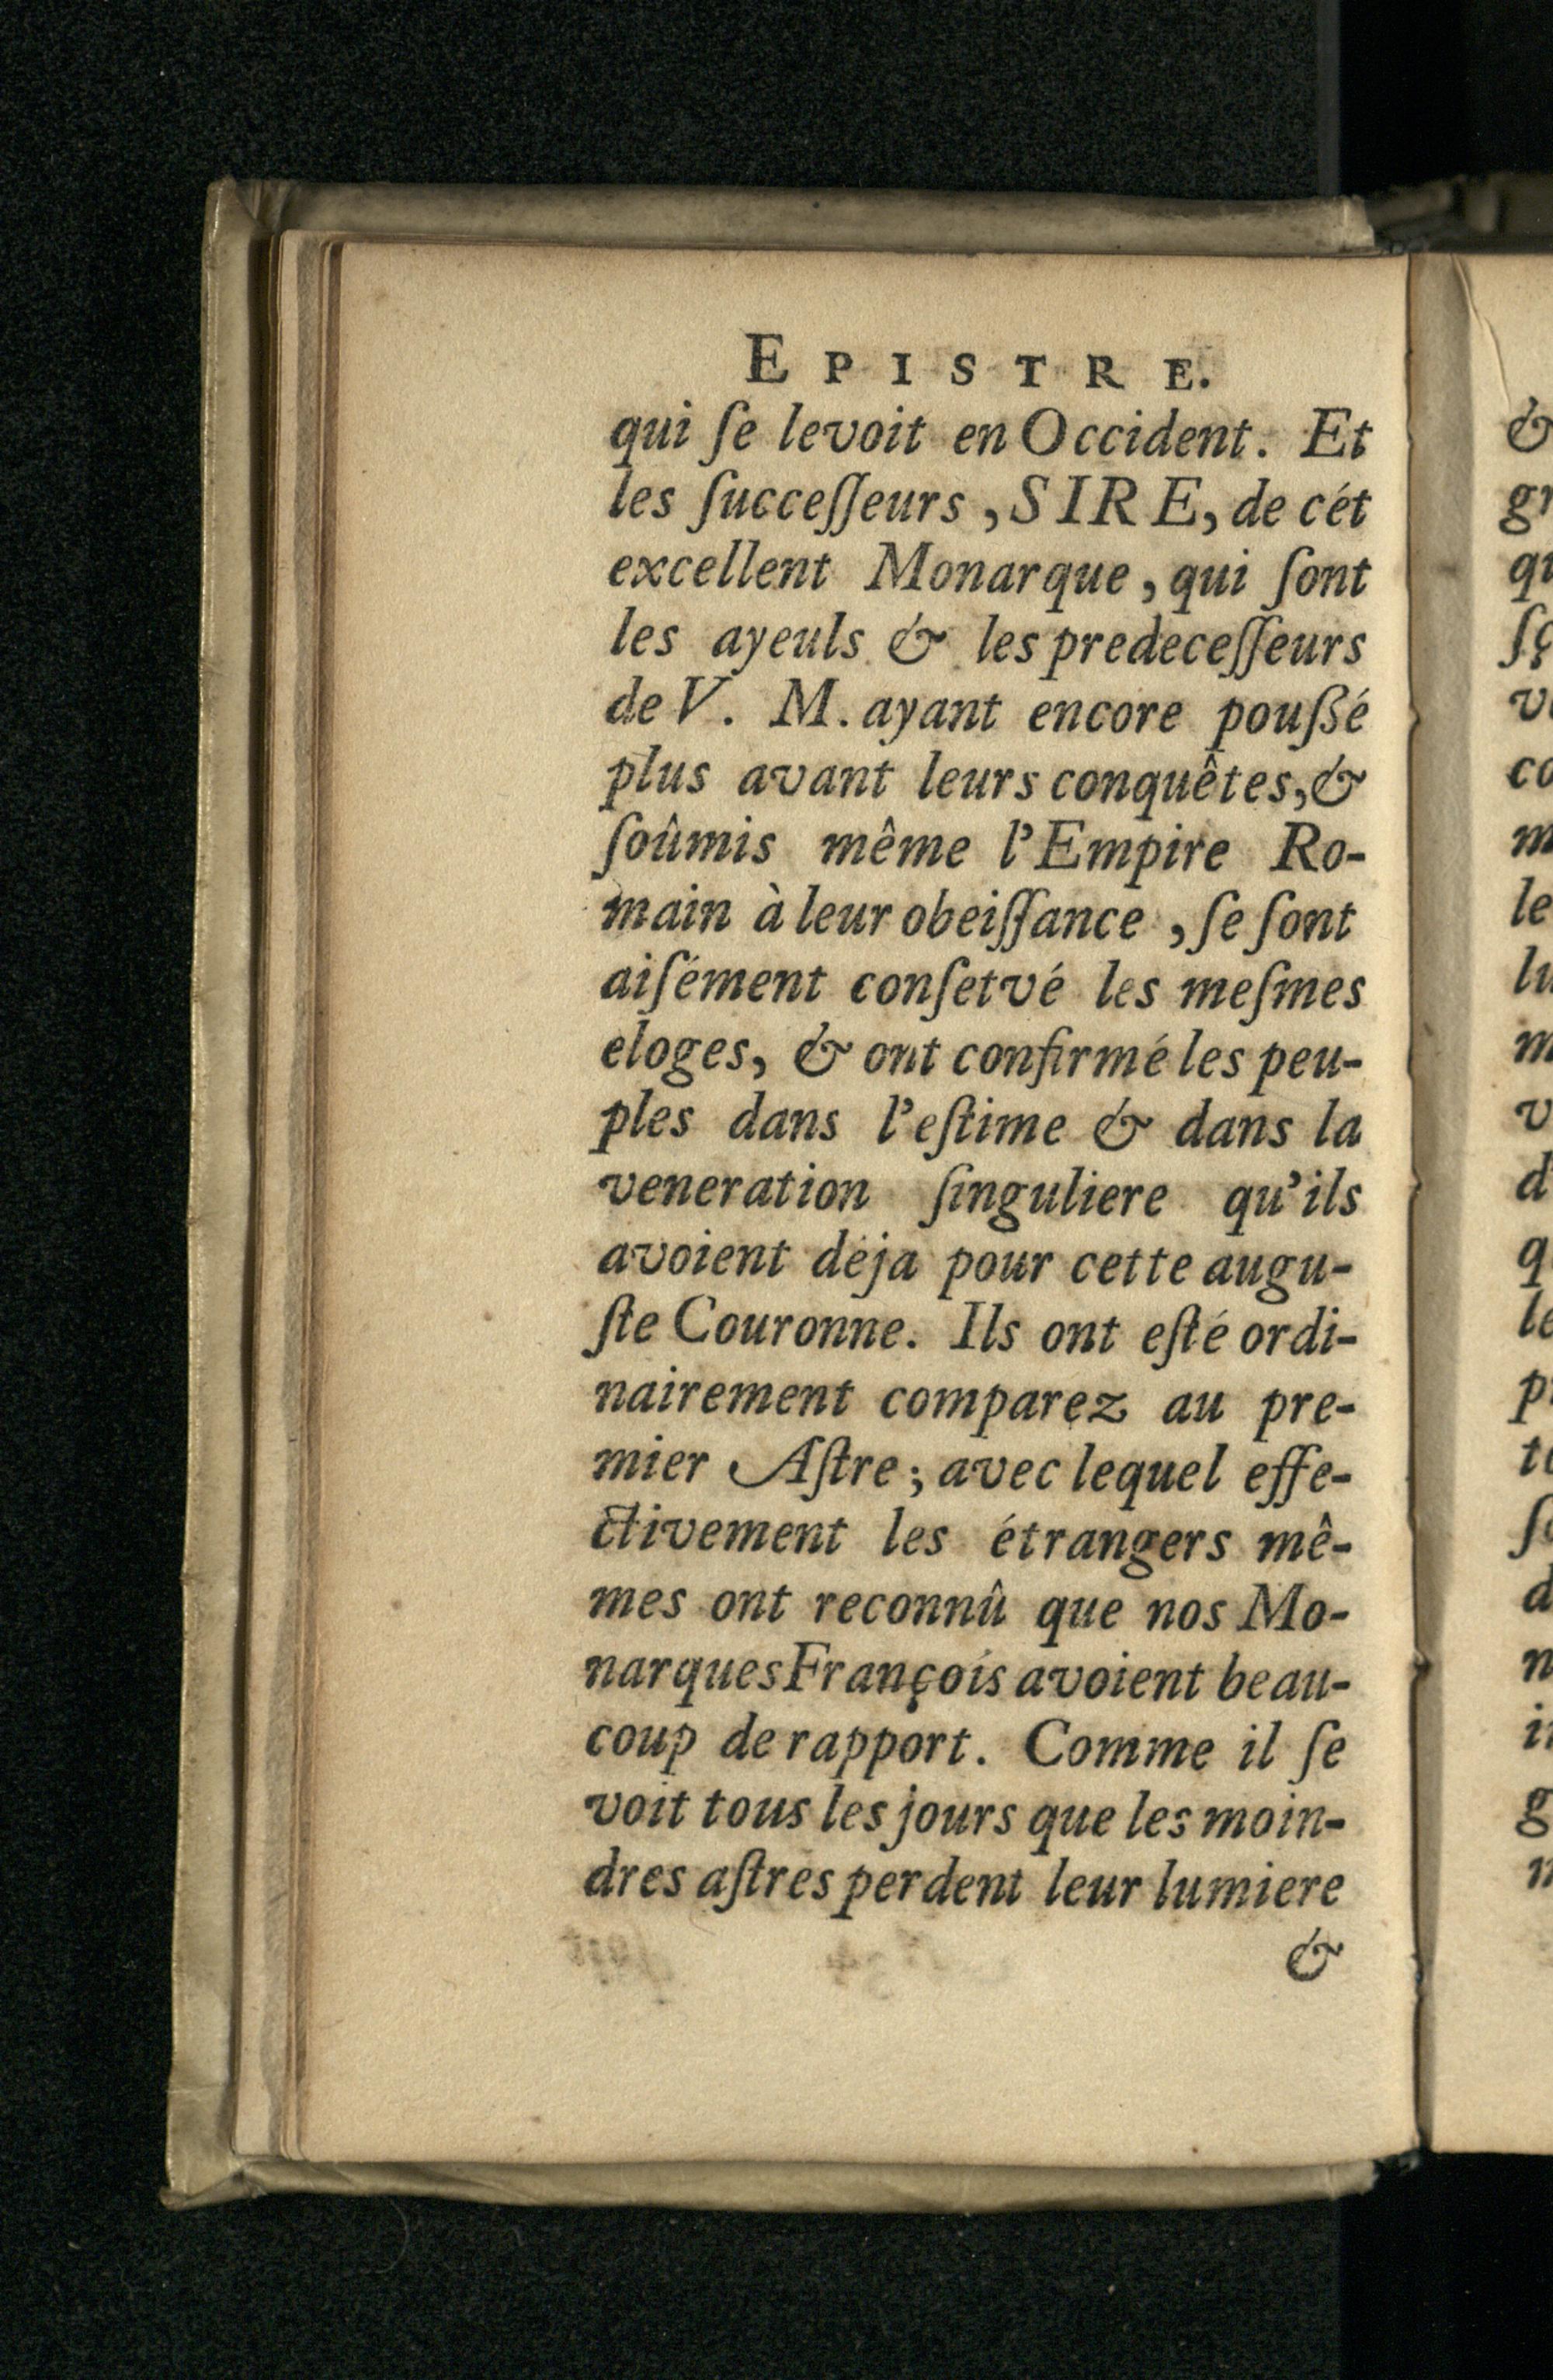 EPISTRE.
qui ſe levoit en Occident. Et
les ſucceſſeurs, SIRE, de cét
excellent Monarque, qui ſont
les ayeuls & les predeceſſeurs
de V. M. ayant encore pouſſé
plus avant leurs conquêtes, &
ſoûmis même l'Empire Ro-
main à leur obeiſſance, ſe ſont
aiſément conſetvé les meſmes
eloges, & ont confirmé les peu-
ples dans l'eſtime & dans la
veneration ſinguliere qu'ils
avoient déja pour cette augu-
ſte Couronne. Ils ont eſté ordi-
nairement comparez au pre-
mier Aſtre; avec lequel effe-
ctivement les étrangers mê-
mes ont reconnû que nos Mo-
narques François avoient beau-
coup de rapport. Comme il ſe
voit tous les jours que les moin-
dres aſtres perdent leur lumiere
&